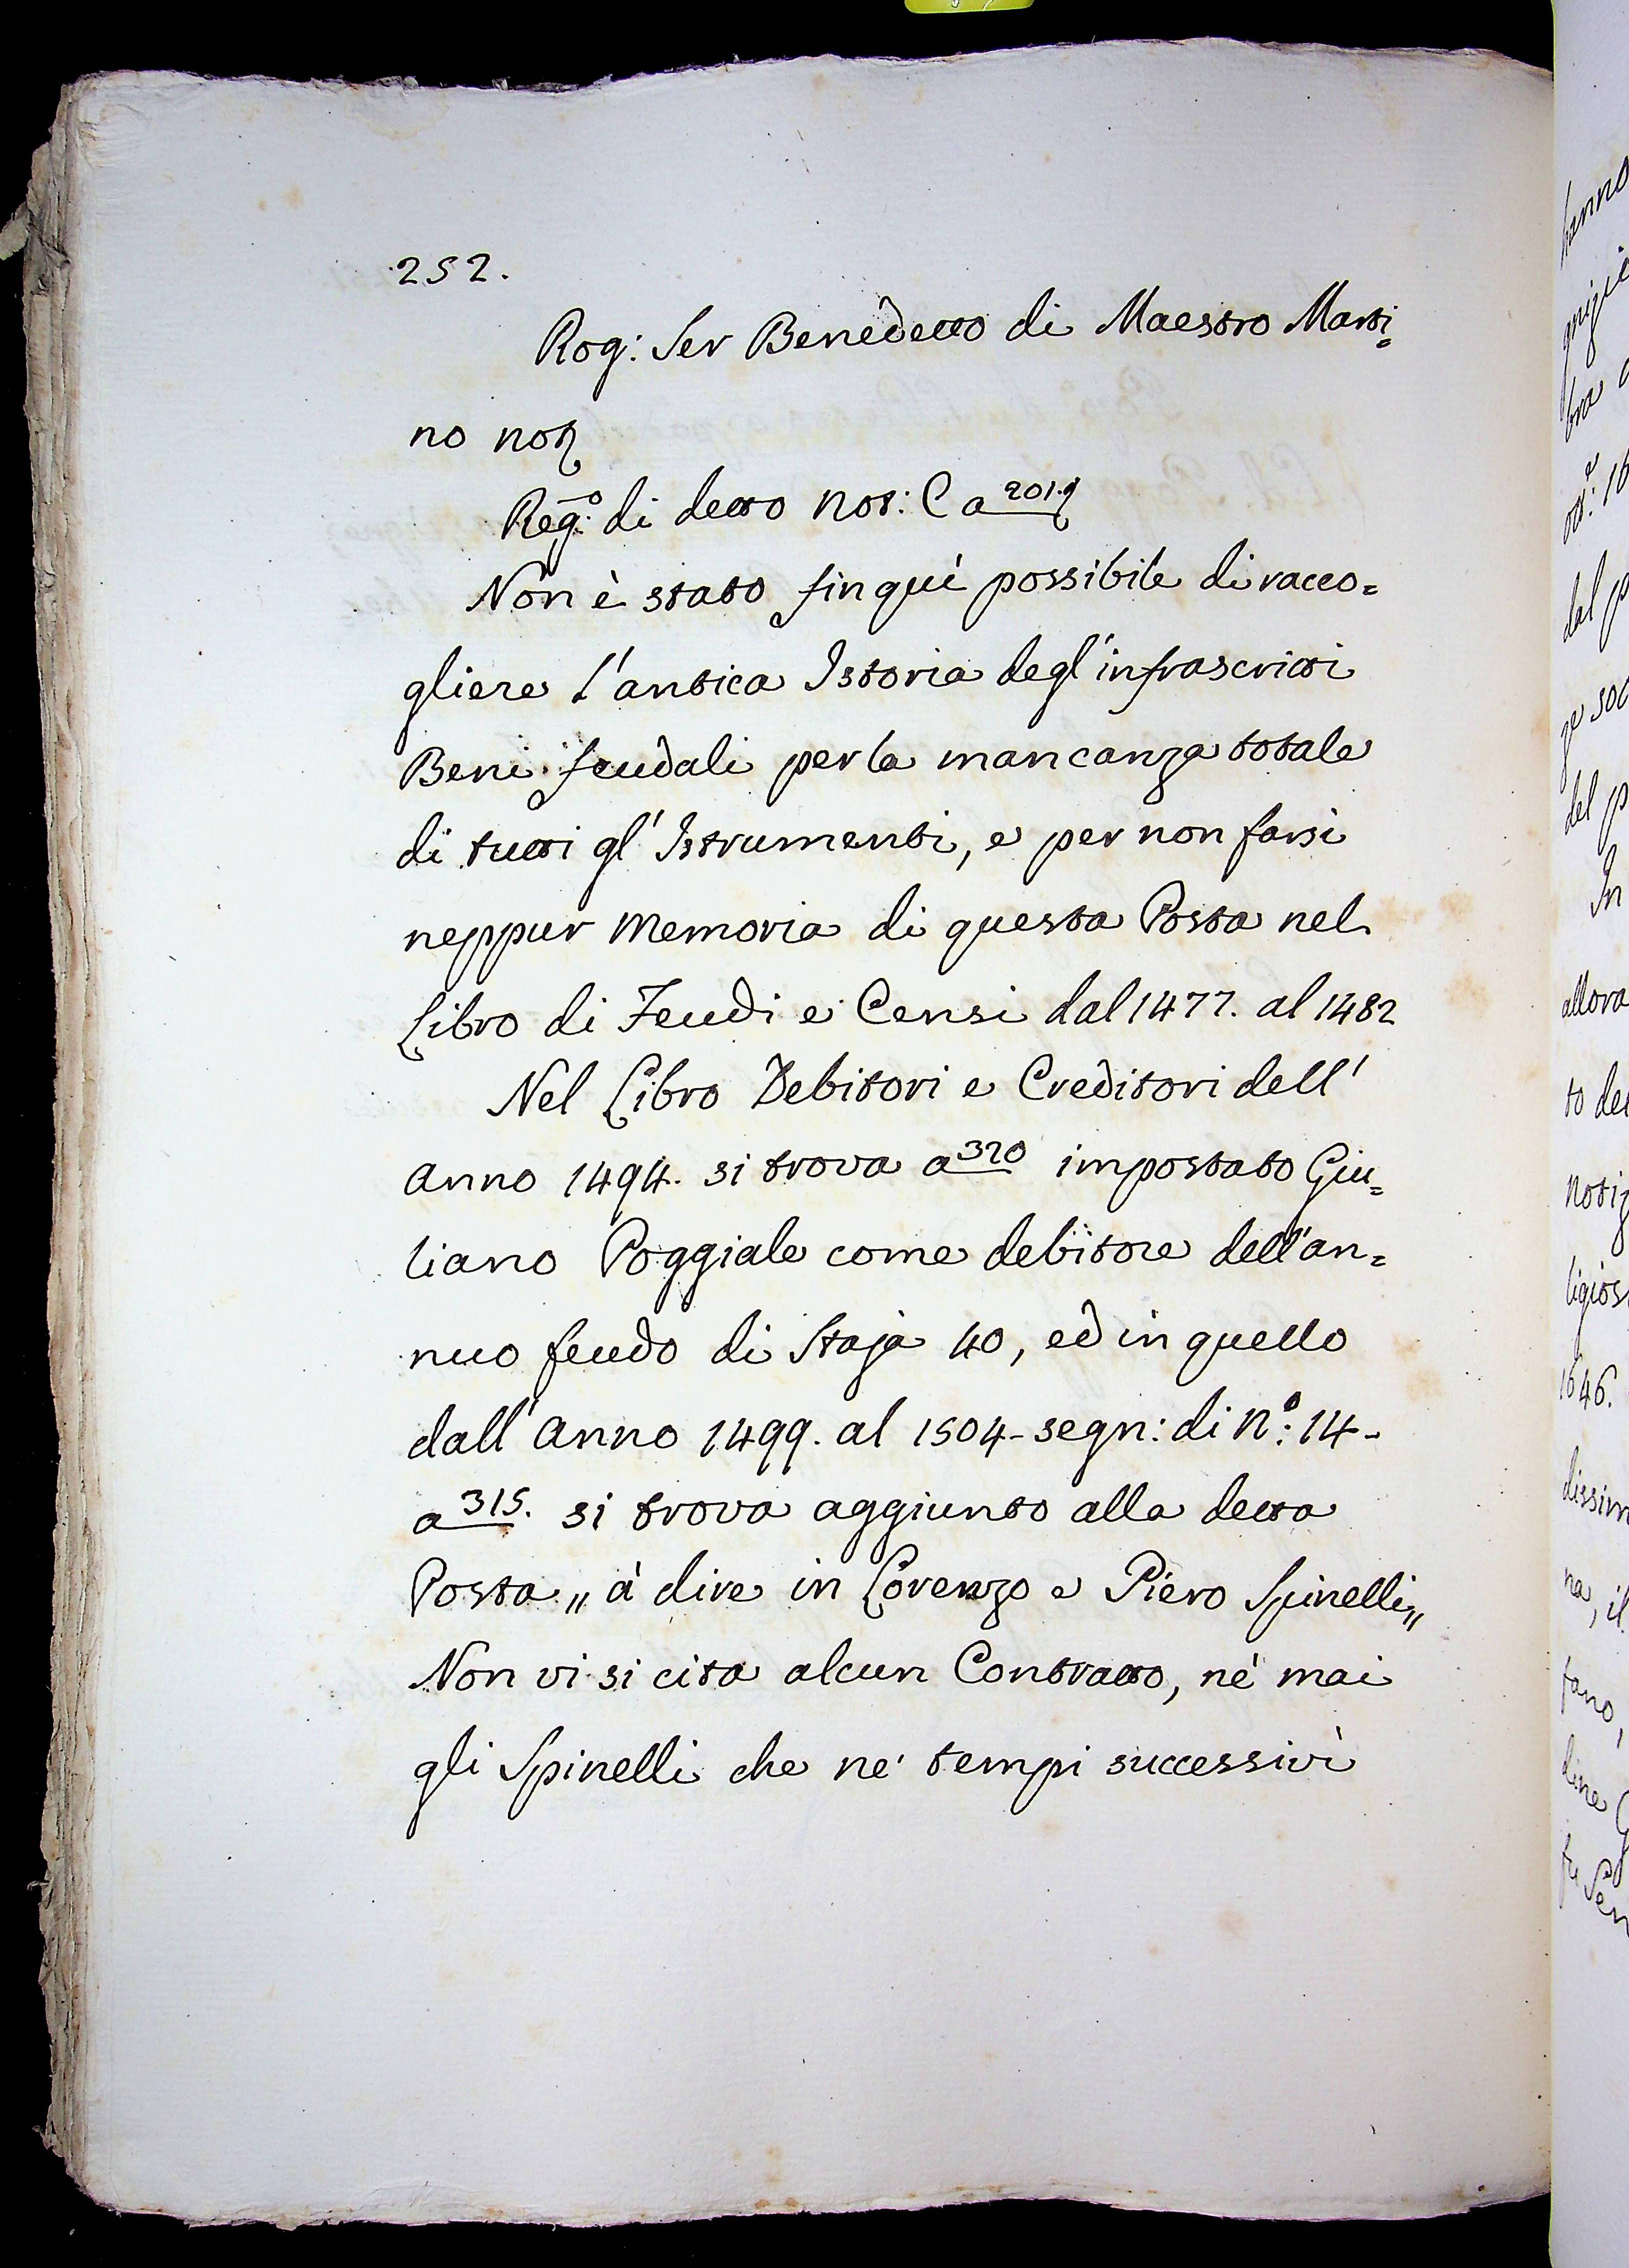 252.
Rog: Ser Benedetto di Maestro Marti=
no not
Reg.º di detto Not: C a 201.
Non è stato fin quì possibile di racco=
gliere l'antica Istoria degl'infrascritti
Beni feudali per la mancanza totale
di tutti gl'Istrumenti, e per non farsi
neppur Memoria di questa Posta nel
Libro di Feudi e Censi dal 1477. al 1482
Nel Libro Debitori e Creditori dell'
Anno 1494. si trova a 320 impostato Giu=
liano Poggiale come debitore dell'an=
nuo feudo di Staja 40, ed in quello
dall'Anno 1499. al 1504- segn: di N.º: 14-
a 315. si trova aggiunto alla detta
Posta „ à dire in Lorenzo e Piero Spinelli„
Non vi si cita alcun Contratto, nè mai
gli Spinelli che ne' tempi successivi